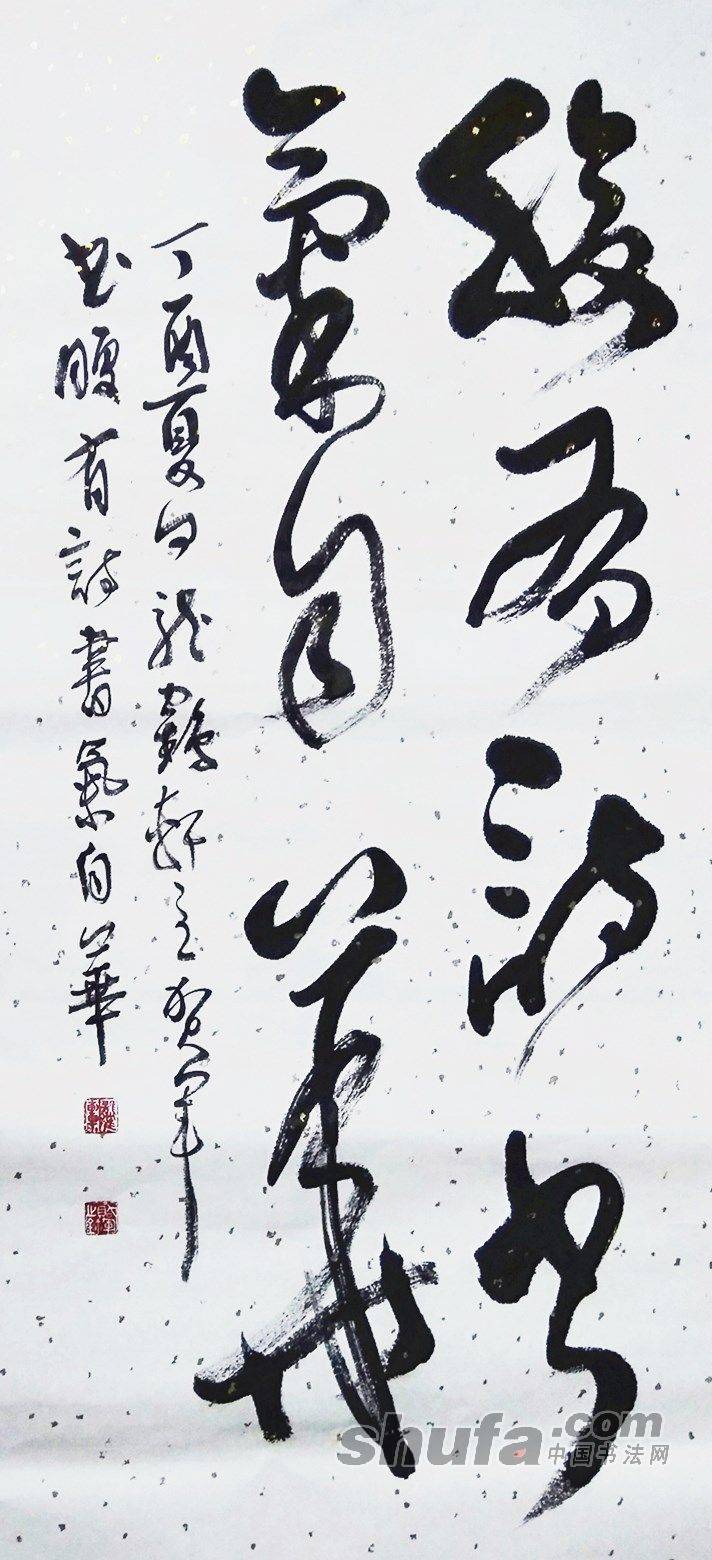 腹有詩书
氣自華
丁酉夏日龍鶴軒主贺军
书腹有詩書氣自華
shufa.com
中国书法网